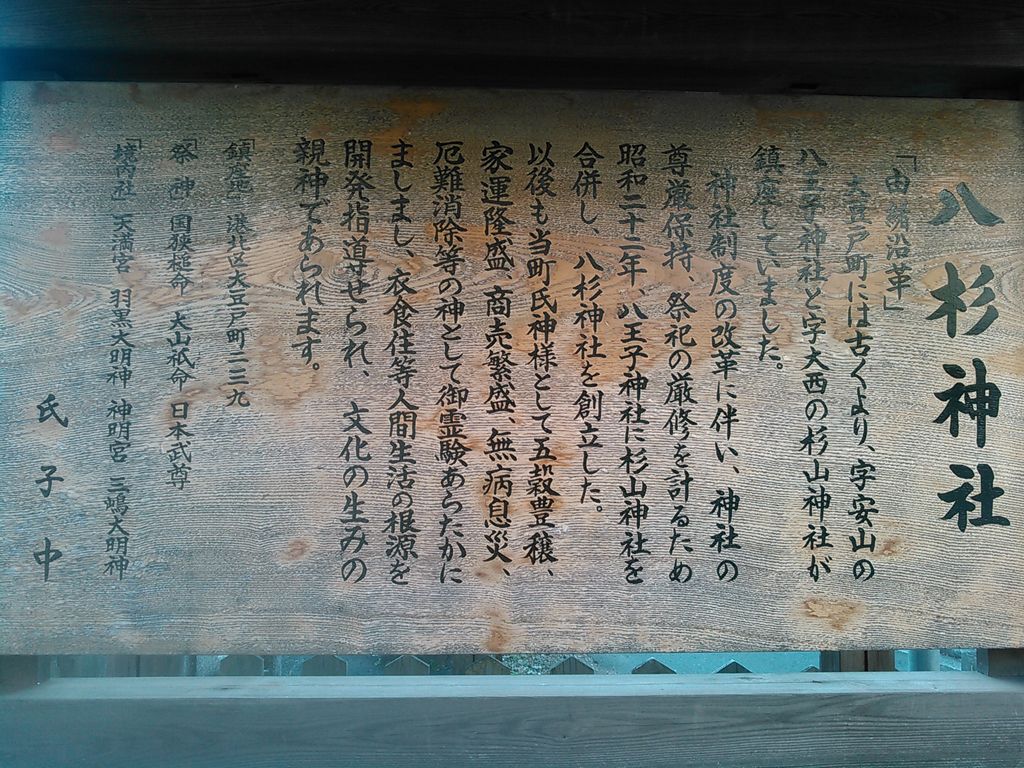 八杉神社
「由緒沿革」
大豆戸町には古くより、字安山の
八王子神社と字大西の杉山神社が
鎮座していました。
神社制度の改革に伴い、神社の
尊厳保持、祭祀の厳修を計るため
昭和二十二年八王子神社に杉山神社を
合併し、八杉神社を創立した。
以後も当町氏神様として五穀豊穣、
家運隆盛、商売繁盛、無病息災、
厄難消除等の神として御霊験あらたかに
ましまし、衣食住等人間生活の根源を
開発指道せられ、文化の生みの
親神であられます。
「鎮座地」港北区大豆戸町二三九
「祭神」国狭槌命 大山祇命 日本武尊
「境内社」天満宮 羽黒大明神 神明宮 三嶋大明神
氏子中